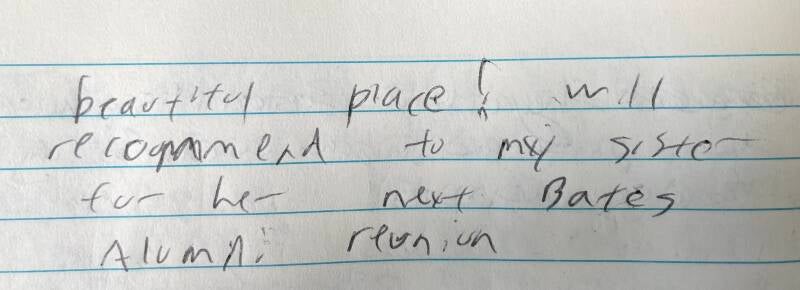 beautiful place! will
recommend to my sister
for her next Bates
Alumni reunion